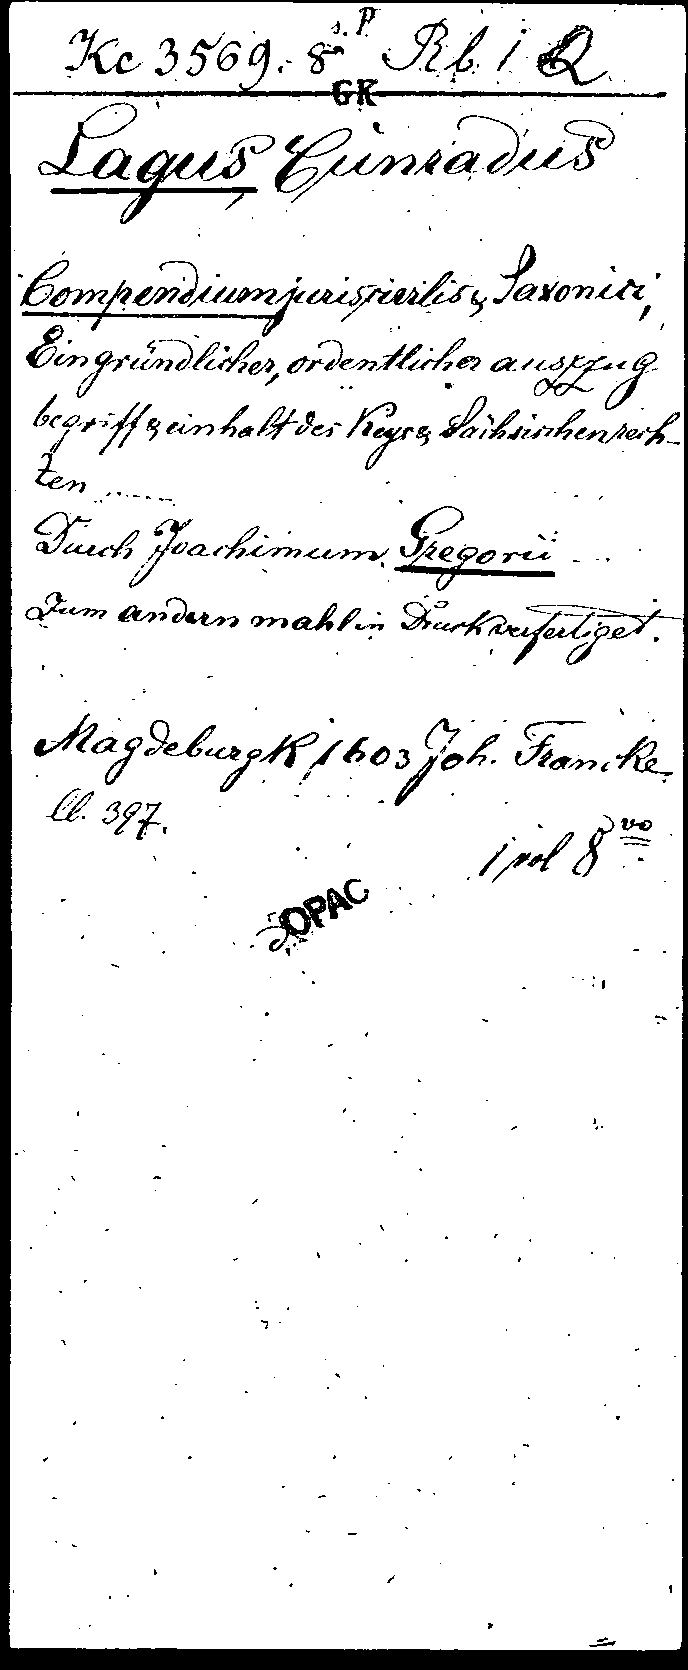 Kc 3569. 8° s. P Rb. 1 Q
GK
Lagus, Cunradus
Compendium juris civilis & Saxonici,
Ein gründlicher, ordentlicher auszzug
begriff & einhalt des Keys. & Sächsischen rech-
ten ......
Durch Joachimum Gregorii ...
Zum andern mahl in Druck verfertiget.
Magdeburgk 1603 Joh. Francke
ll. 397.
1 vol 8vo
OPAC